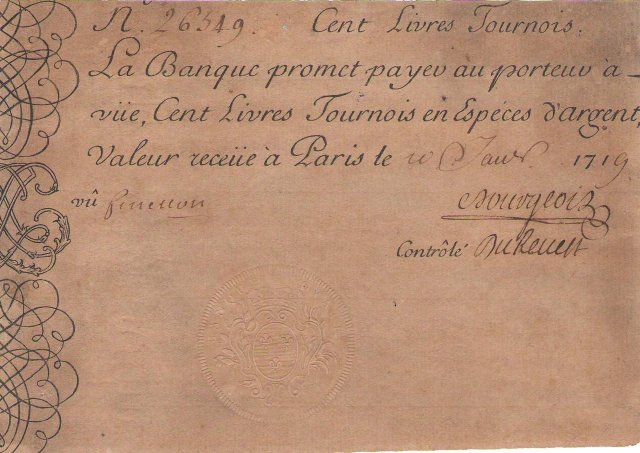 N. 26349. Cent Livres Tournois.
La Banque promet payer au porteur à
vüe, Cent Livres Tournois en Espéces d'argent,
valeur receüe à Paris le 10 Janr. 1719.
vû fenellon Bourgeois
Contrôlé Durevest